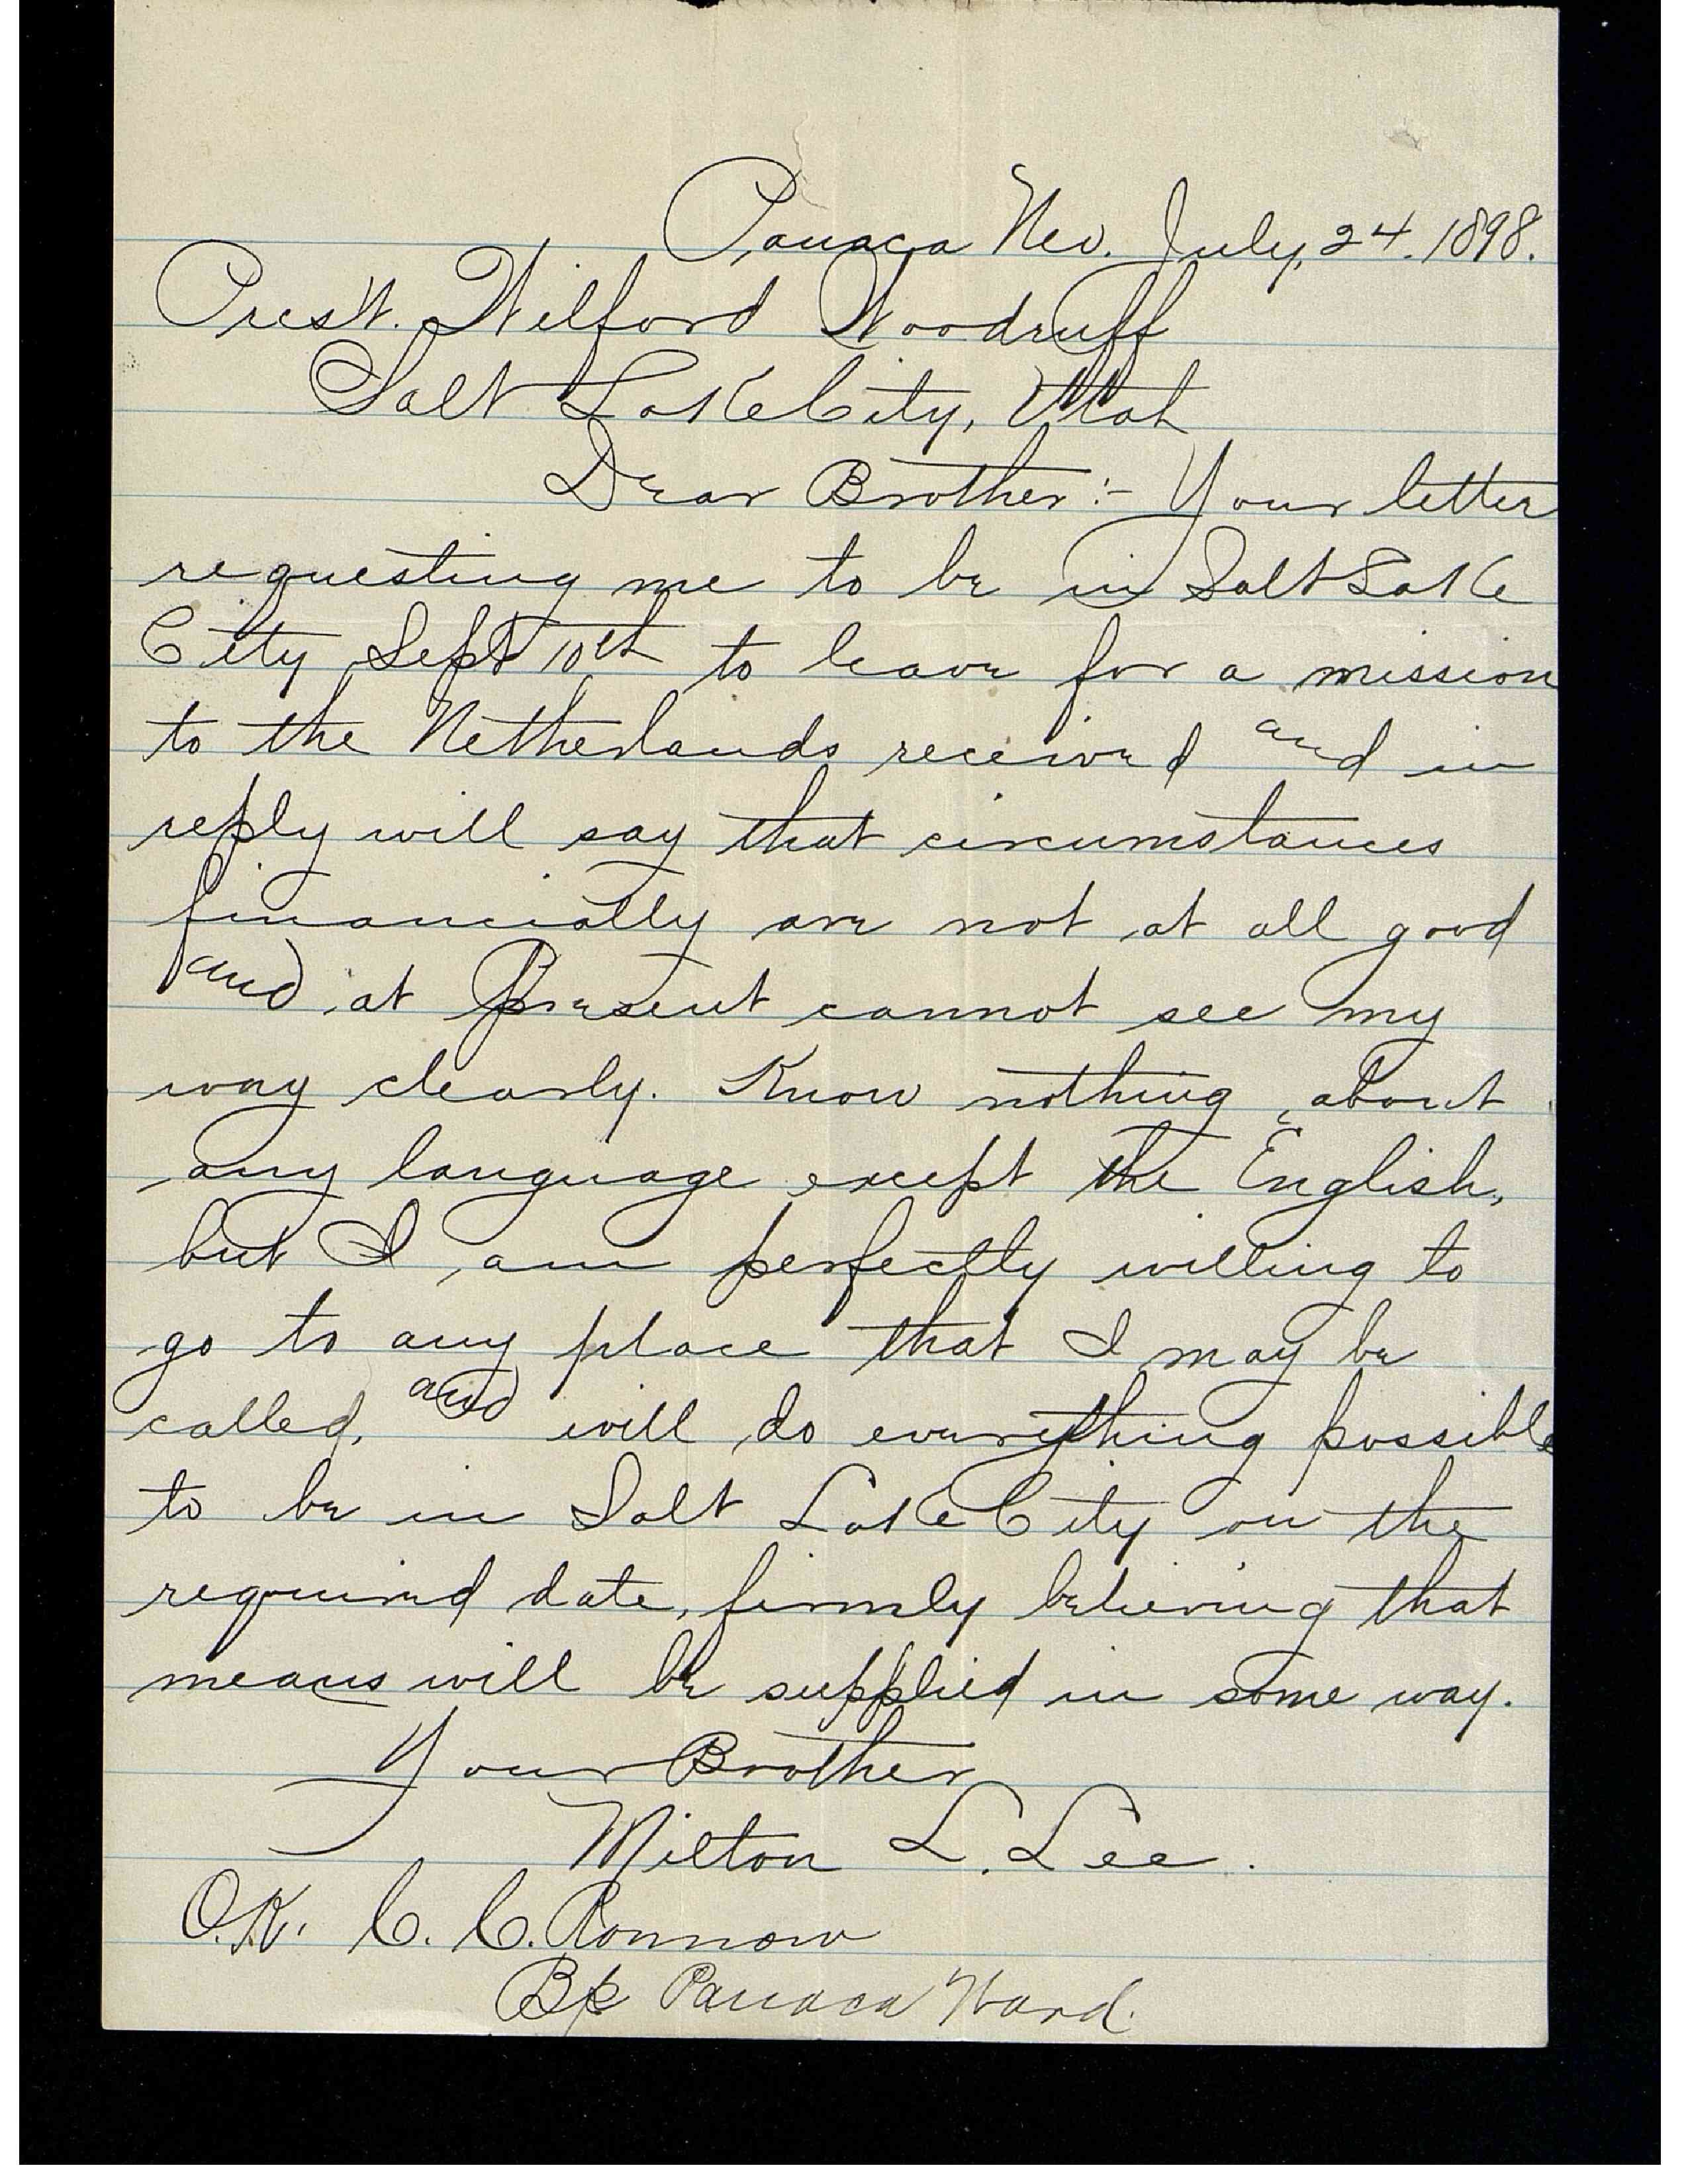 Panaca Nev. July, 24. 1898.
Prest. Wilford Woodruff
Salt Lake City, Utah
Dear Brother:- Your letter
requesting me to be in Salt Lake
City Sept 10th to leave for a mission
to the Netherlands received and in
reply will say that circumstances
financially are not at all good
and at Present cannot see my
way clearly. Know nothing about
any language except the English,
but I am perfectly willing to
go to any place that I may be
called, and will do everything possible
to be in Salt Lake City on the
required date, firmly believing that
means will be supplied in some way.
Your Brother
Milton L. Lee.
O.K. C. C. Ronnow
Bp Panaca Ward.